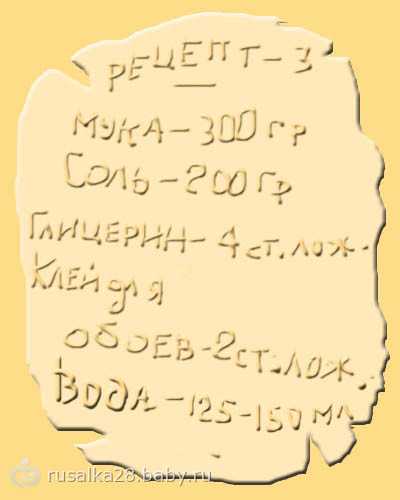 РЕЦЕПТ-3
МУКА-300 гр
СОЛЬ-200 гр
ГЛИЦЕРИН-4 ст.лож.
КЛЕЙ для
ОБОЕВ-2 ст.лож.
ВОДА-125-150 мл
rusalka28.baby.ru